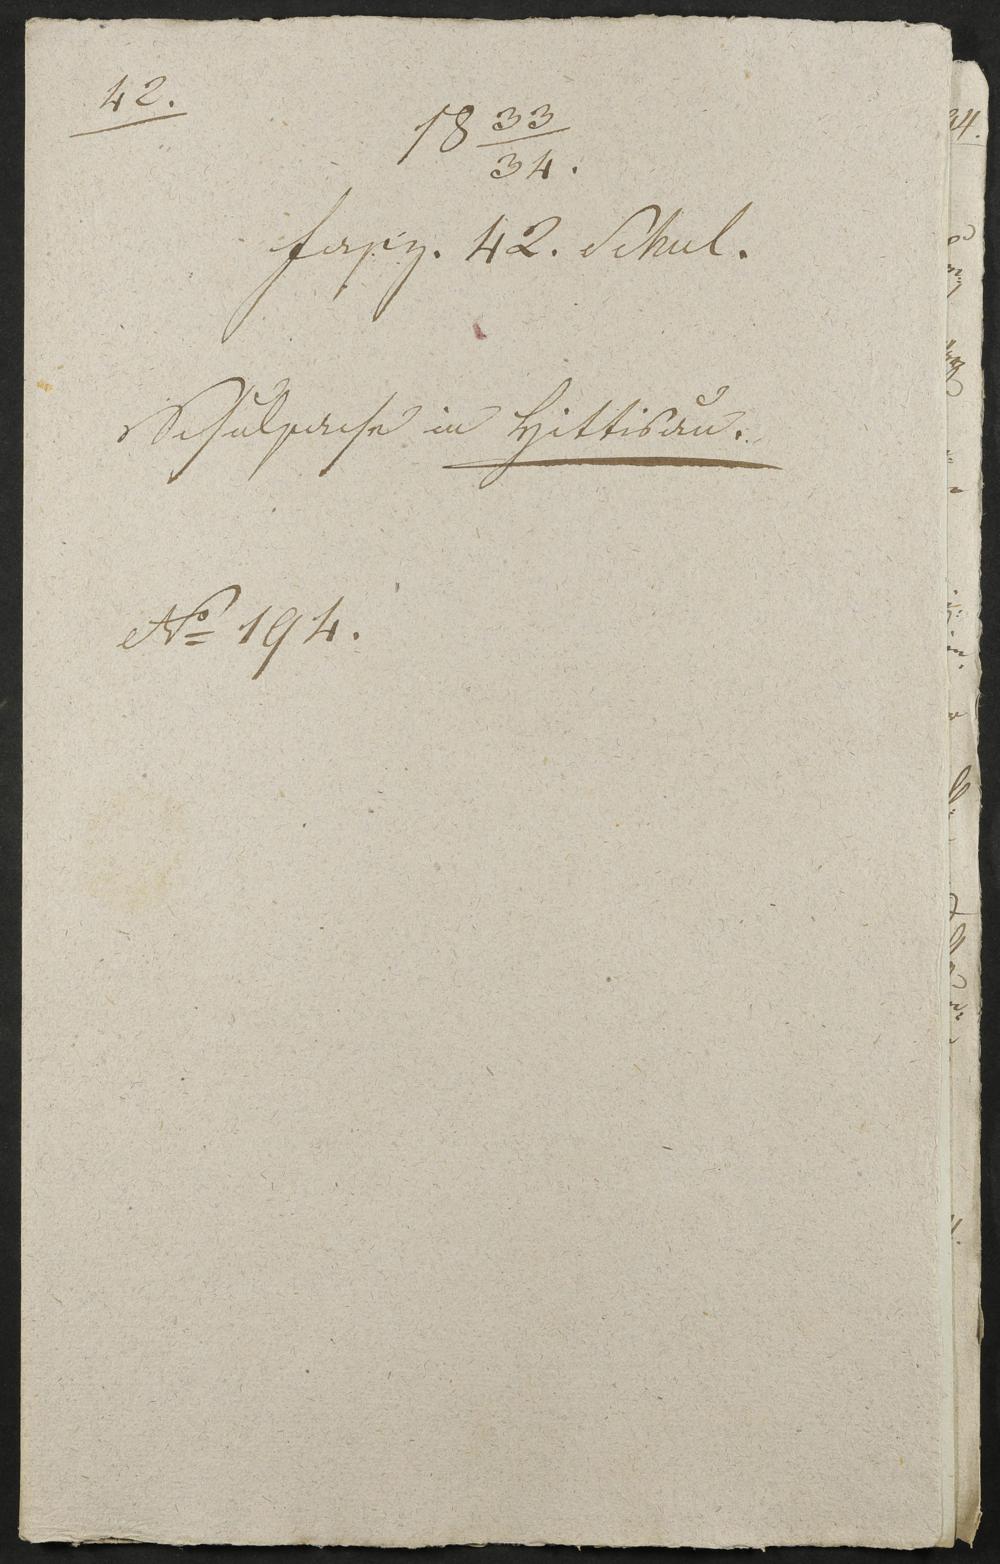 42.
18 33/34.
Fasz. 42. Schul.
Schulsache in Hittisau.
No 194.